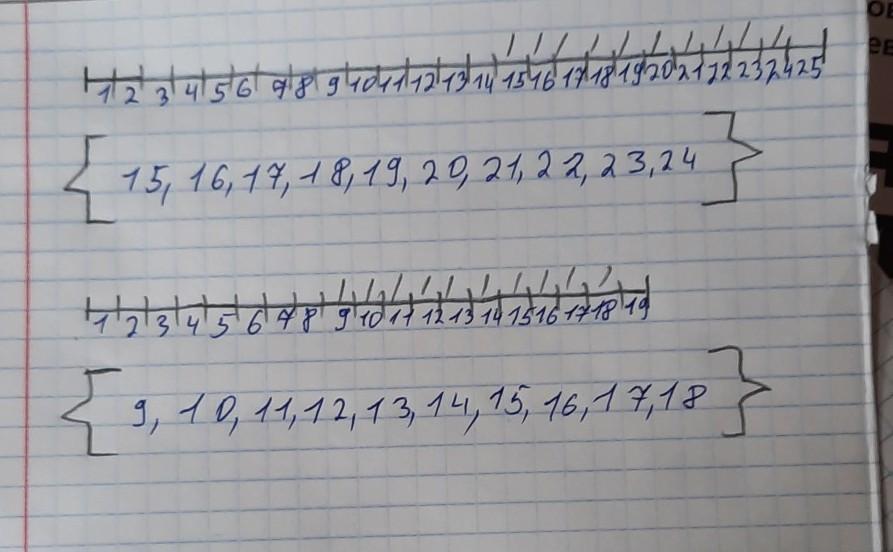 1 2 3 4 5 6 7 8 9 10 11 12 13 14 15 16 17 18 19 20 21 22 23 24 25
{ 15, 16, 17, 18, 19, 20, 21, 22, 23, 24 }
1 2 3 4 5 6 7 8 9 10 11 12 13 14 15 16 17 18 19
{ 9, 10, 11, 12, 13, 14, 15, 16, 17, 18 }